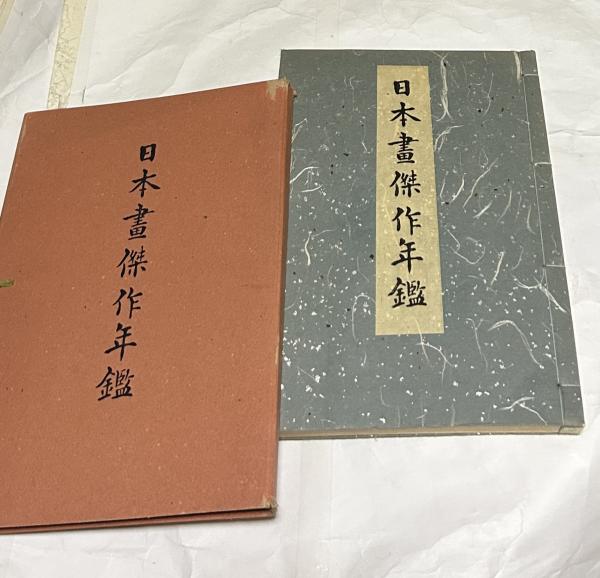 日本畫傑作年鑑
日本畫傑作年鑑